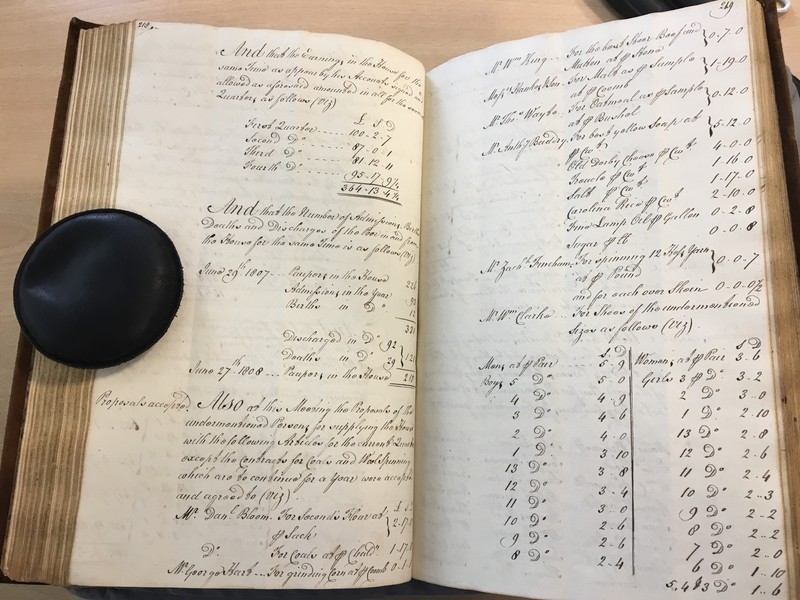 218
And that the Earnings in the House for the
same Time as appears by his Accounts signed and
allowed as aforesaid amounted in all for the several
Quarters as follows (Viz)
£ S D
First Quarter 100-2-7
Second Do 87-0-1
Third Do 81-12-11
Fourth Do 95-17-9¼
364-13-4¼
And that the Number of Admissions Births
Deaths and Discharges of the Poor in and from
the House for the same Time is as follows (Viz)
June 29th 1807 - Paupers in the House
Admissions in the Year
Births in Do 12
Discharged in Do 92
Deaths in Do 29
June 27th 1808 - Paupers in the House
Proposals accepted. Also at this Meeting the Proposals of the
undermentioned Persons for supplying the House
with the following Articles for the current Quarter
except the Contracts for Coals and Wool spinning
which are to continue for a Year were accepted
and agreed to (Viz)
Mr. Danl. Bloom - For Seconds Flour at
⅌ Sack
Do. For Coals at ⅌ Chaldn
Mr George Hart - For grinding Corn at ⅌ Coomb
219
Mr. Wm King - For the best Steer Beef and
Mutton at ⅌ Stone 0-7-0
For Malt as ⅌ Sample
at ⅌ Coomb 1-19-0
Mr. Thos. For Oatmeal as ⅌ Sample
at ⅌ Bushel 0-12-0
Mr. Anthy. For best yellow Soap at
⅌ Cwt 5-12-0
Old Derby Cheese ⅌ Cwt 4-0-0
Treacle ⅌ Cwt 1-16-0
Salt ⅌ Cwt 1-17-0
Carolina Rice ⅌ Cwt 2-10-0
Fine Lamp Oil ⅌ Gallon 0-2-8
Sugar ⅌ lb 0-0-8
Mr. Zach. For spinning 12 Yarn
at ⅌ Pound 0-0-7
and for each over Skein 0-0-0½
Mr. Wm. Clarke - For Shoes of the undermentioned
Sizes as follows (Viz)
S D S D
Mens at ⅌ Pair 5-9 Womens at ⅌ Pair 3-6
Boys 5 Do 5 0 Girls 3 ⅌ Do 3-2
4 Do 4-9 2 Do 3-0
3 Do 4-6 1 Do 2-10
2 Do 4-0 13 Do 2-8
1 Do 3 10 12 Do 2-6
13 Do 3-8 11 Do 2-4
12 Do 3-4 10 Do 2-3
11 Do 3-0 9 Do 2-2
10 Do 2-6 8 Do 2-2
9 Do 2-6 7 Do 2-0
8 Do 2-4 6 Do 1-10
5.4 & 3 Do 1-6